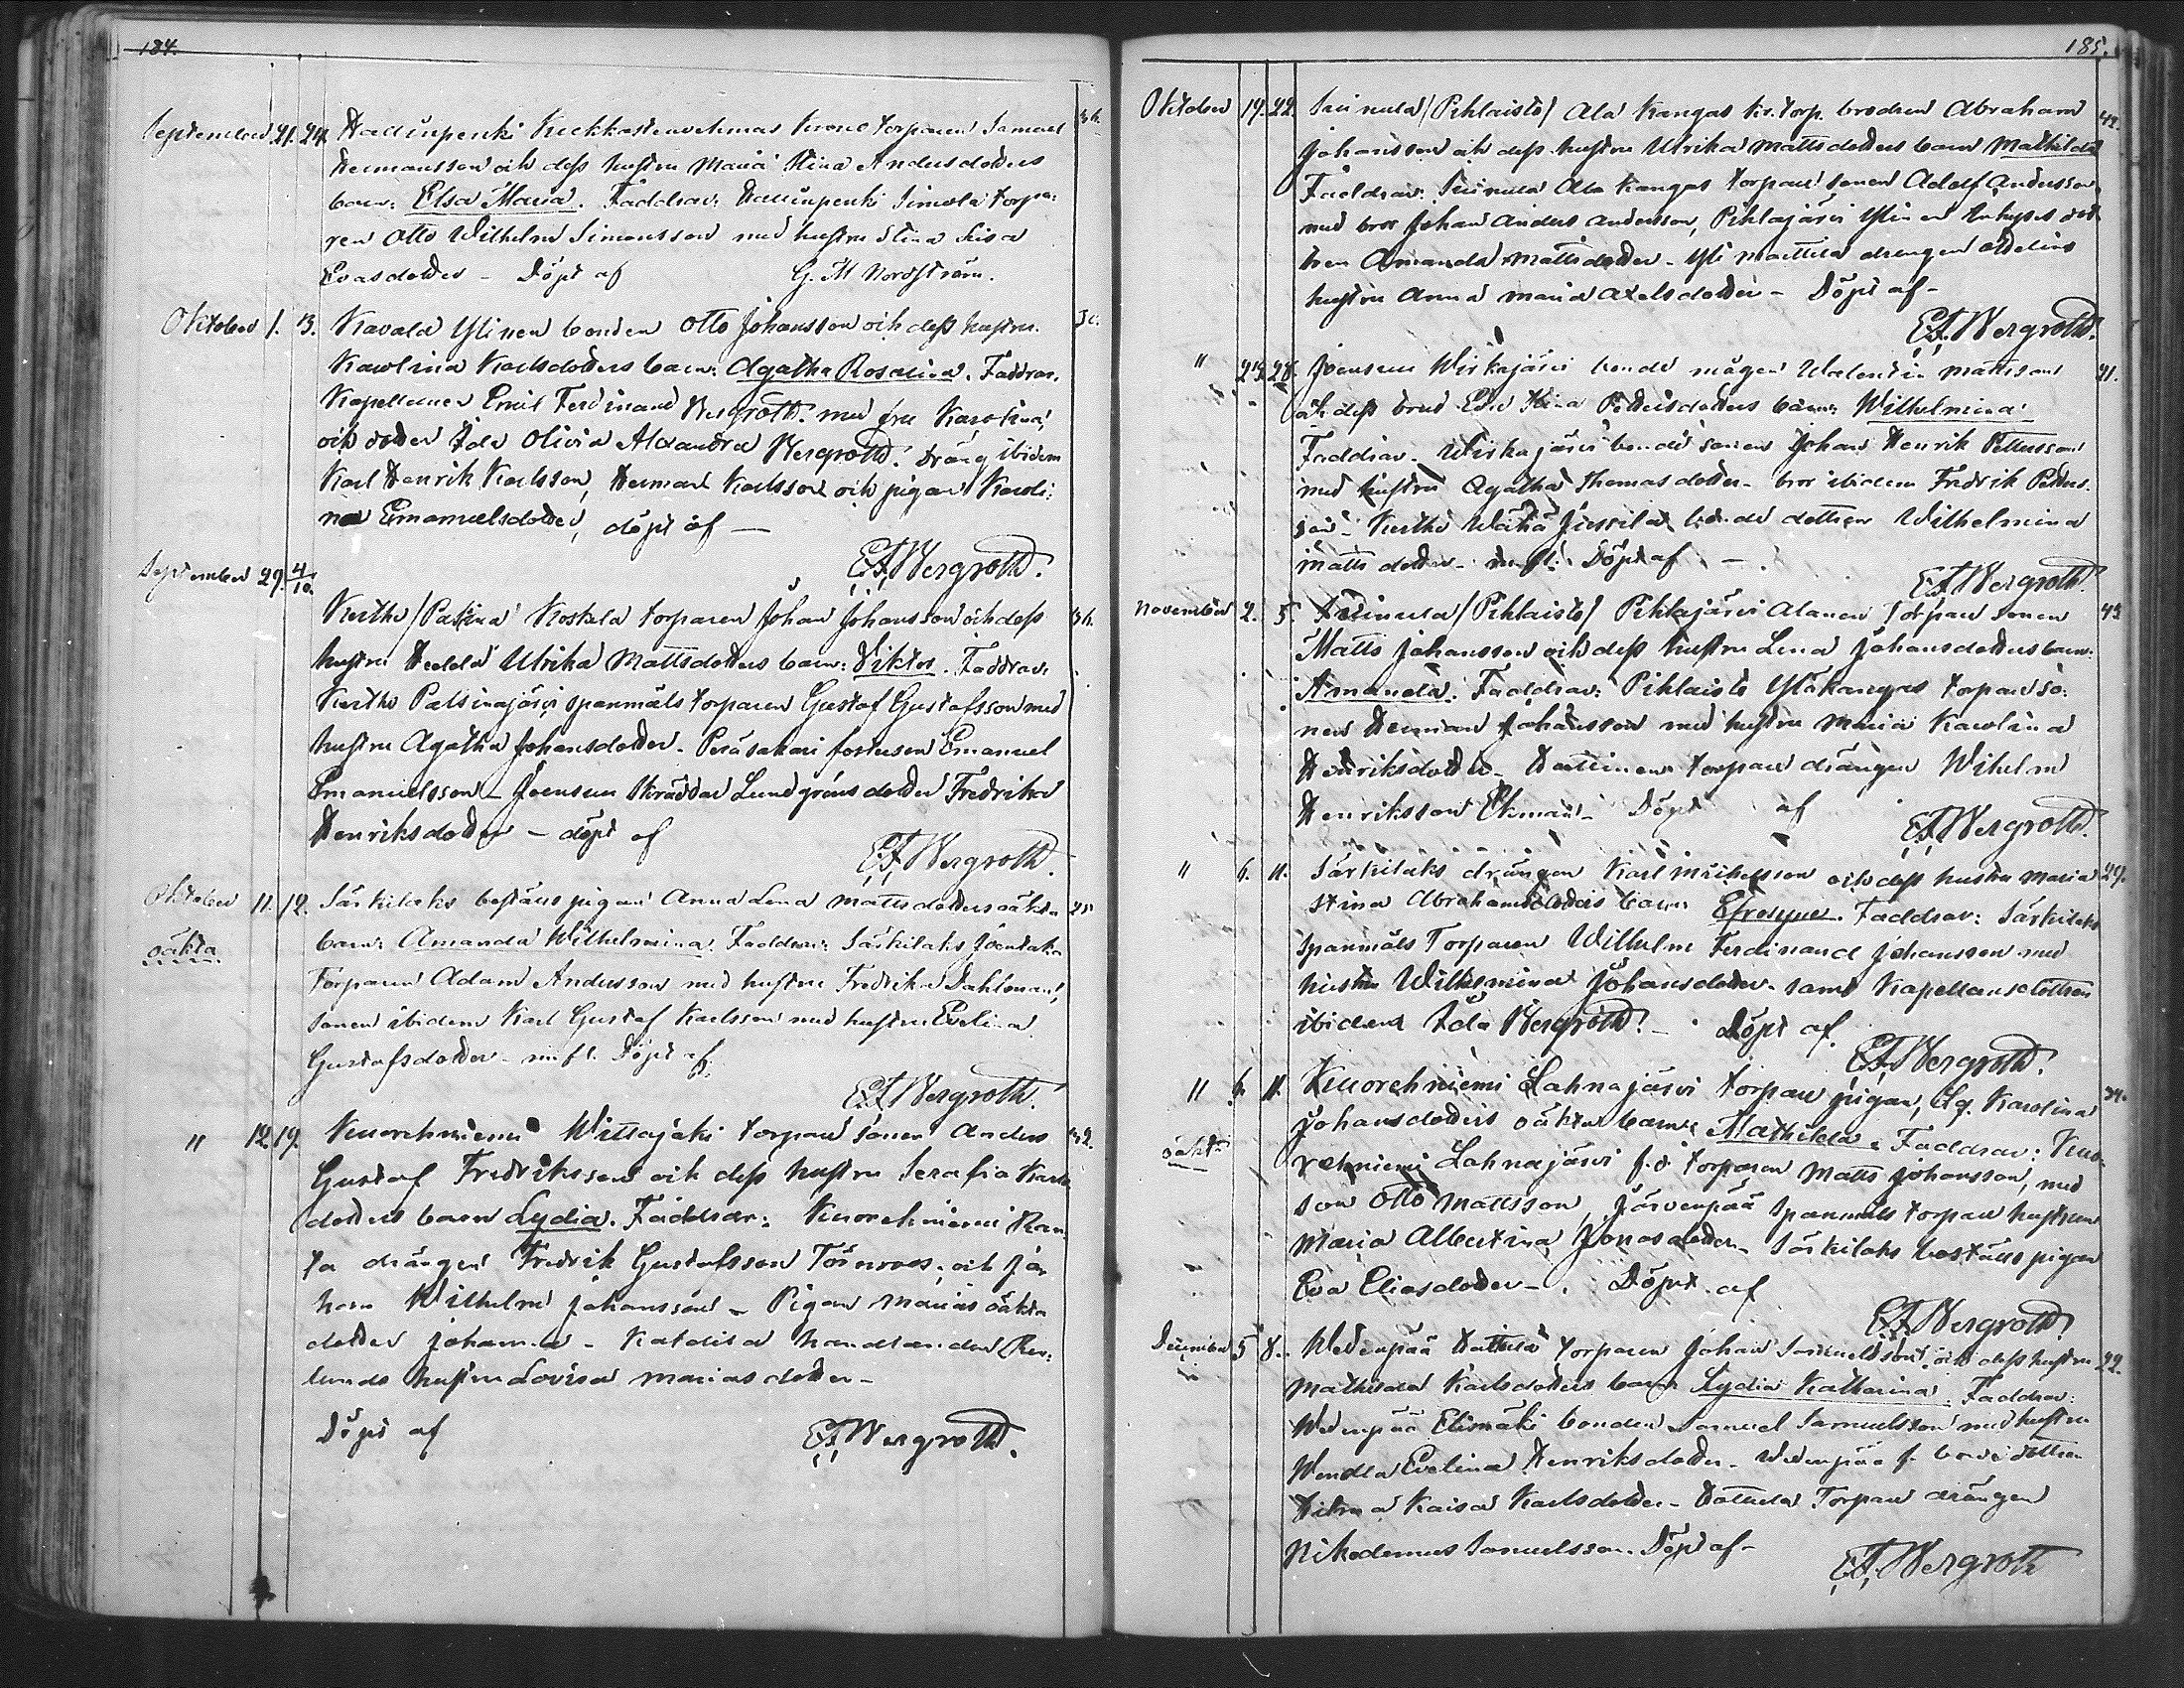 184.
September 21. 24. Kuckkastenoehmas Krono torparen Samuel 36.
Hermansson och dess hustru Maria Stina Andersdotters
barn: Elsa Maria. Faddrar: Simola torpa-
ren Otto Wilhelm Simonsson med hustru Stina Lisa
Evasdotter – Döpt af G. M Nordström.
Oktober 1. 3. Kavala Ylinen bonden Otto Johansson och dess hustru
Karolina Karlsdotters barn: Agatha Rosalina. Faddrar.
Kapellanen Emil Ferdinand Bergroth med fru Karolina
och dotter Ida Olivia Alexandra Bergroth. Dräng ibidem
Karl Henrik Karlsson, Herman Karlsson och pigan Karoli-
na Emanuelsdotter, döpt af –
E.F. Bergroth.
September 29. 4/10.
Koskela torparen Johan Johansson och dess
hustru Hedda Ulrika Mattsdotters barn: Viktor. Faddrar:
spanmåls torparen Gustaf Gustafsson med
hustru Agatha Johansdotter. Peräsakari Emanuel
Emanuelsson – Joensuu Skräddar Lundgréns dotter Fredrika
Henriksdotter – döpt af
E.F. Bergroth.
Oktober 11. 12. Särkilaks bostäus pigan Anna Lena Mattsdotters oäkta 25
oäkta
barn: Amanda Wilhelmina. Faddrar: Särkilaks
Torparen Adam Andersson med hustru Fredrika Dahlman,
sonen ibidem Karl Gustaf Karlsson med hustru Evelina
Gustafsdotter – m fl. Döpt af.
E.F. Bergroth.
" 12. 19. Kuorehniemi Wittajaki torpare sonen Anders
Gustaf Fredriksson och dess hustru Serafia Karls
dotters barn Lydia. Faddrar: Kuorehniemi Ran-
ta drängen Fredrik Gustafsson Törnroos, och Jo-
han Wilhelm Johansson – Pigan Marias oäkta
dotter Johanna – handlanden
lunds hustru Lovisa Mariasdotter –
Döpt af E.F. Bergroth.
185.
Oktober 19. 22. (Pihlaisto) Ala Kangas kr. torp. brodren Abraham
Johansson och dess hustru Ulrika Mattsdotters barn Mathilda
Faddrar: Ala Kangas torpare sonen Adolf Andersson
med bror Johan Anders Andersson, Pihlajärvi Ylinen Inhyses dot-
tren Amanda Mattsdotter – Yli Mattila drengen
hustru Anna Maria Axelsdotter – Döpt af –
E.F. Bergroth.
" 28. Joensuu Wirkajärvi bonde mågen Valentin Mattsson 21.
och dess brud Eva Stina Pettersdotters barn: Wilhelmina
Faddrar. Wirkajärvi bonde sonen Johan Henrik Pettersson
med hustru Agatha Thomasdotter – bror ibidem Fredrik Petters-
son – Jussila bonde dottren Wilhelmina
Mattsdotter – m fl. Döpt af –
E.F. Bergroth.
November 2. 5. (Pihlaisto) Pihlajärvi Alanen Torpare sonen 43
Matts Johansson och dess hustru Lena Johansdotters barn:
Amanda. Faddrar: Pihlaisto Yläkangas torpare so-
nen Herman Johansson med hustru Maria Karolina
Henriksdotter – torpare drängen Wilhelm
Henriksson Ekman – Döpt af
E.F. Bergroth.
" 6. 11. Särkilaks drängen Karl Michelsson och dess hustru Maria 29.
Stina Abrahamsdotters barn: Efrosyne. Faddrar: Särkilaks
Spanmåls Torparen Wilhelm Ferdinand Johansson med
hustru Wilhelmina Johansdotter – samt Kapellans dottren
ibidem Ida Bergroth. – Döpt af.
E.F. Bergroth.
" 6. 11. Kuorehniemi Lahnajärvi torpare pigan, Karolina
oäkta
Johansdotters oäkta barn: Mathilda. Faddrar: Kuo-
rehniemi Lahnajärvi f.d. torparen Matts Johansson, med
son Otto Mattsson, Järvenpää Spanmåls torpare hustrun
Maria Albertina Jonasdotter – Särkilaks bostäus pigan
Eva Eliasdotter – . Döpt af
E.F. Bergroth
December 5 8. Wedenpää Hattula torparen Johan Samuelsson och dess hustru 22.
Mathilda Karlsdotters barn Lydia Katharina. Faddrar:
Wedenpää Elismäki bonden Samuel Samuelsson med hustru
Wendla Evelina Henriksdotter – Wedenpää f. bonde dottren
Hilma Kaisa Karlsdotter – Hattula Torpare drängen
Nikodemus Samuelsson. Döpt af –
E.F. Bergroth